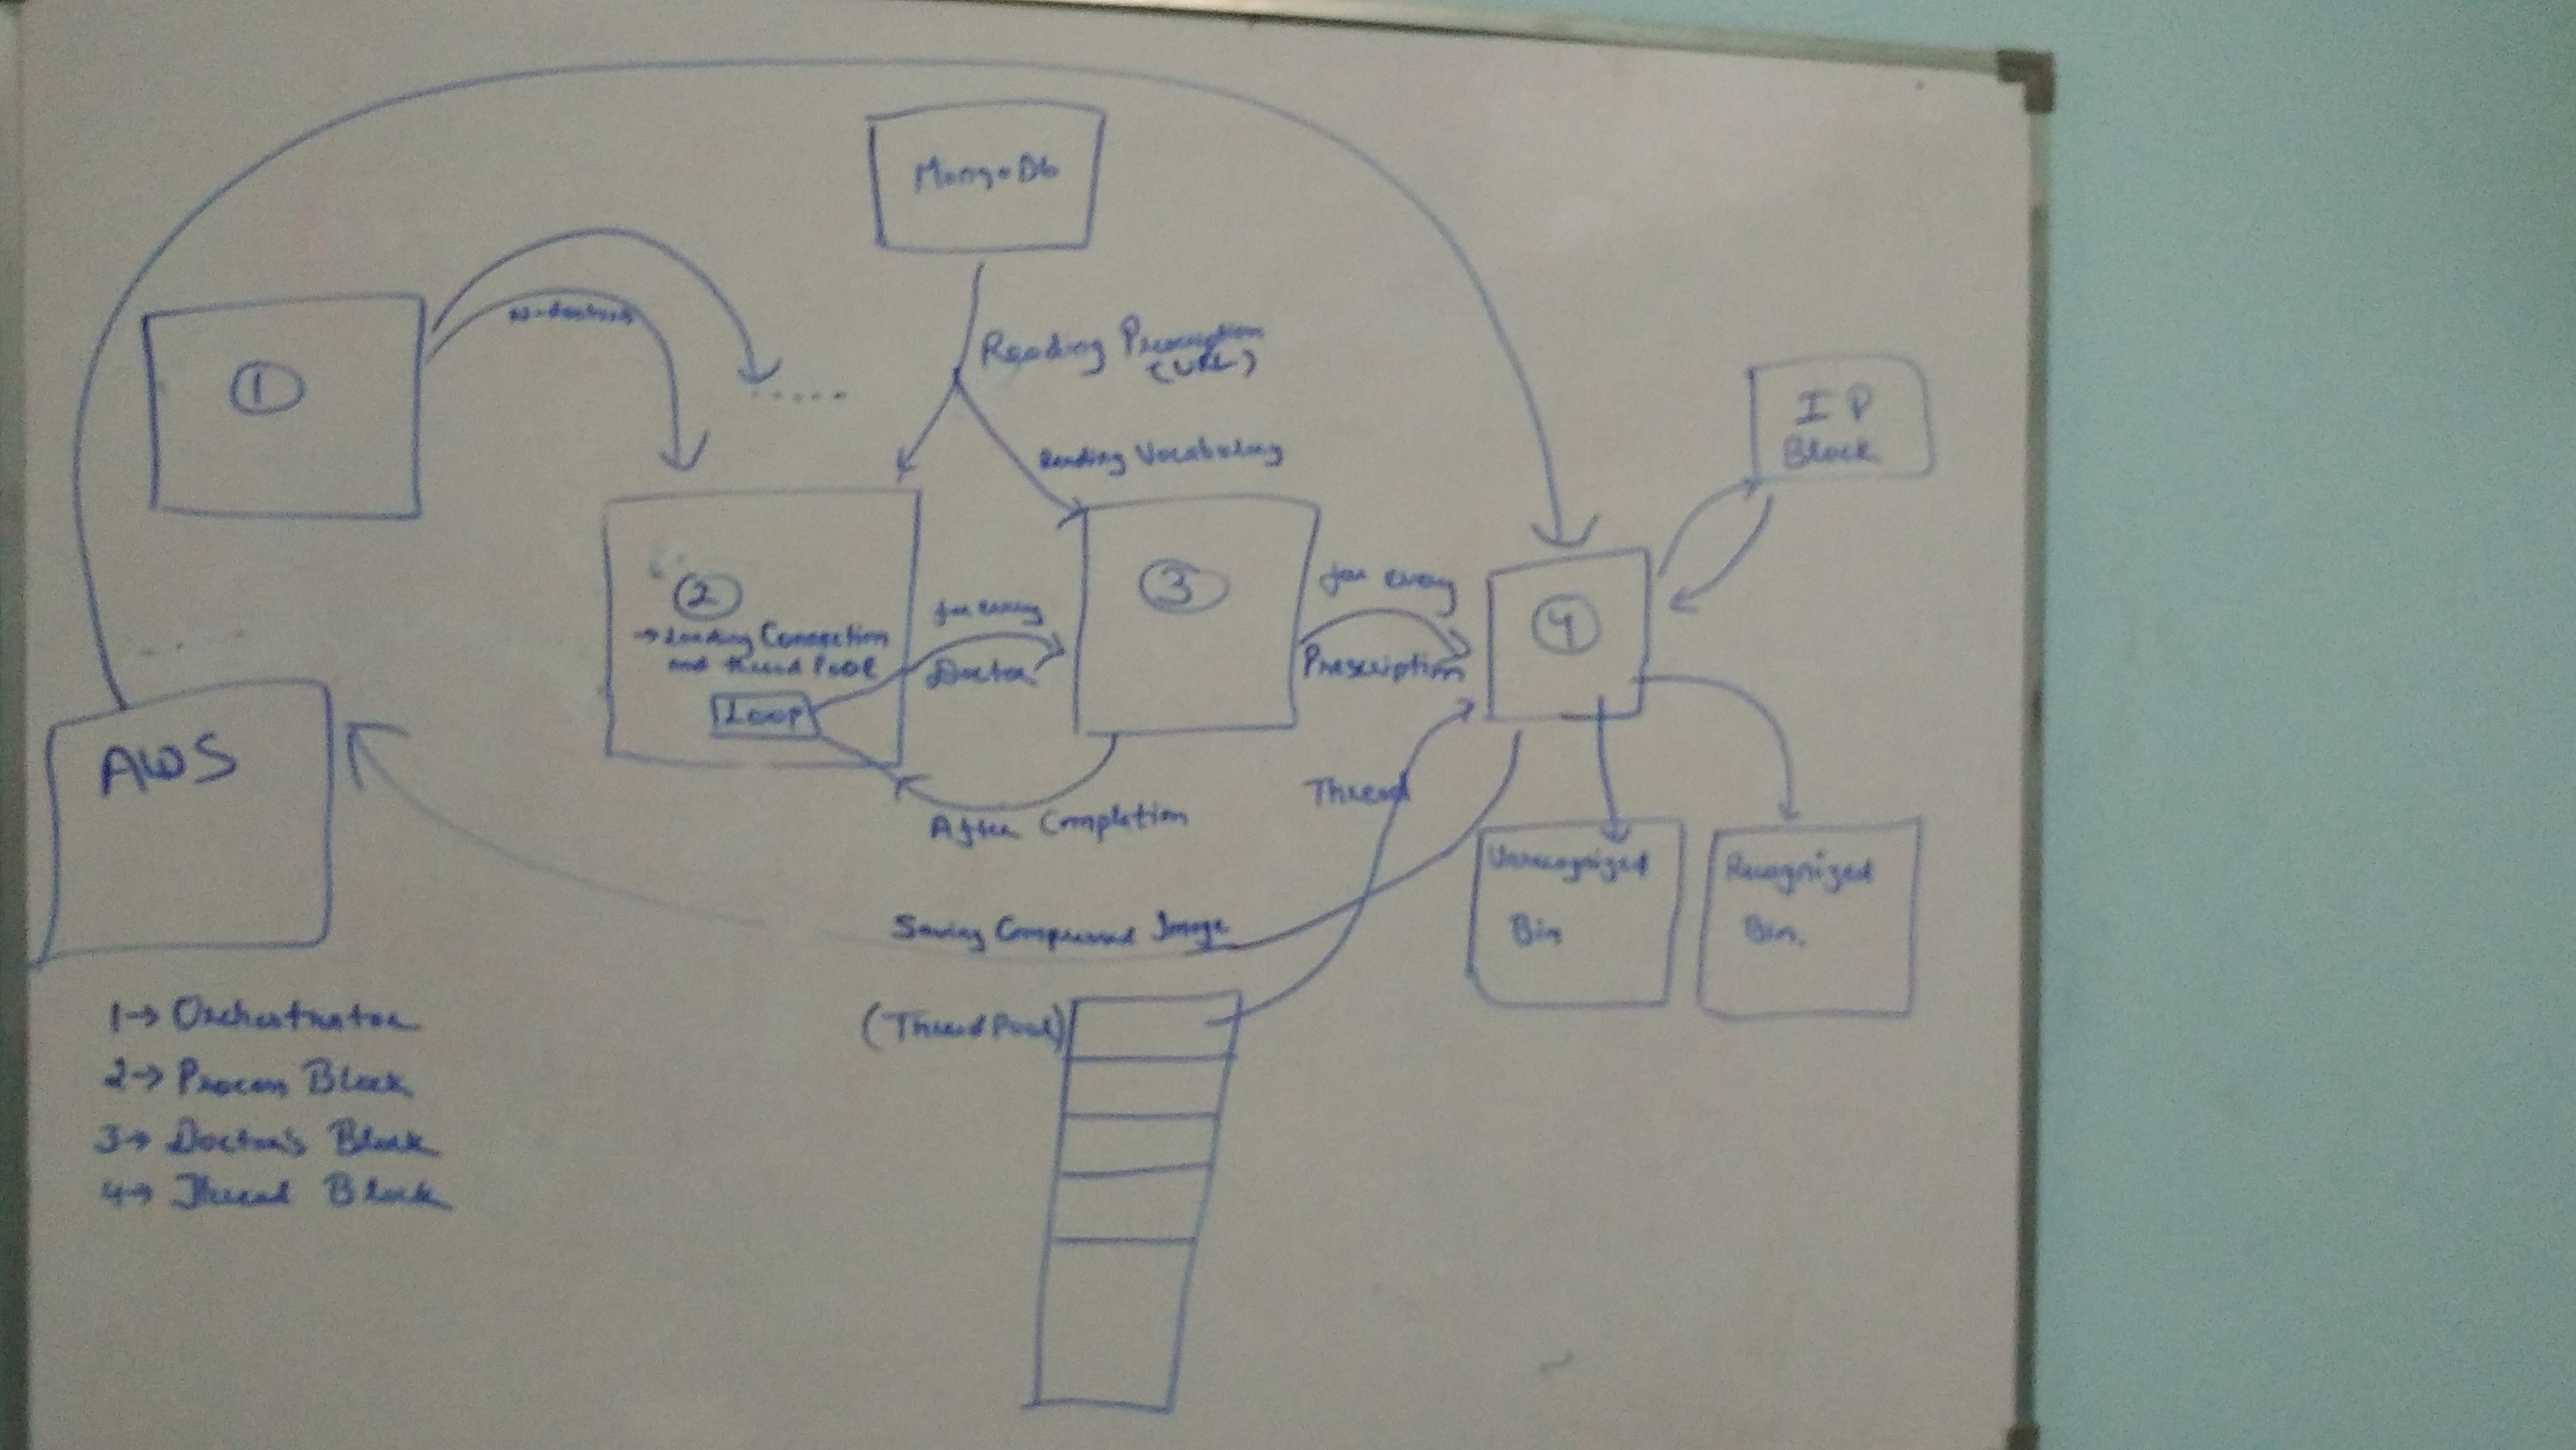 MongoDb
N-doctors
1
Reading Prescription
(URL)
IP
Block
Reading Vocabulary
2
→ Loading Connection
and thread Pool
Loop
for every
Doctor
3
for every
Prescription
4
AWS
After Completion
Thread
Unrecognized
Bin
Recognized
Bin.
Saving Compressed Image
(Thread Pool)
1→ Orchestrator
2→ Process Block
3→ Doctor's Block
4→ Thread Block